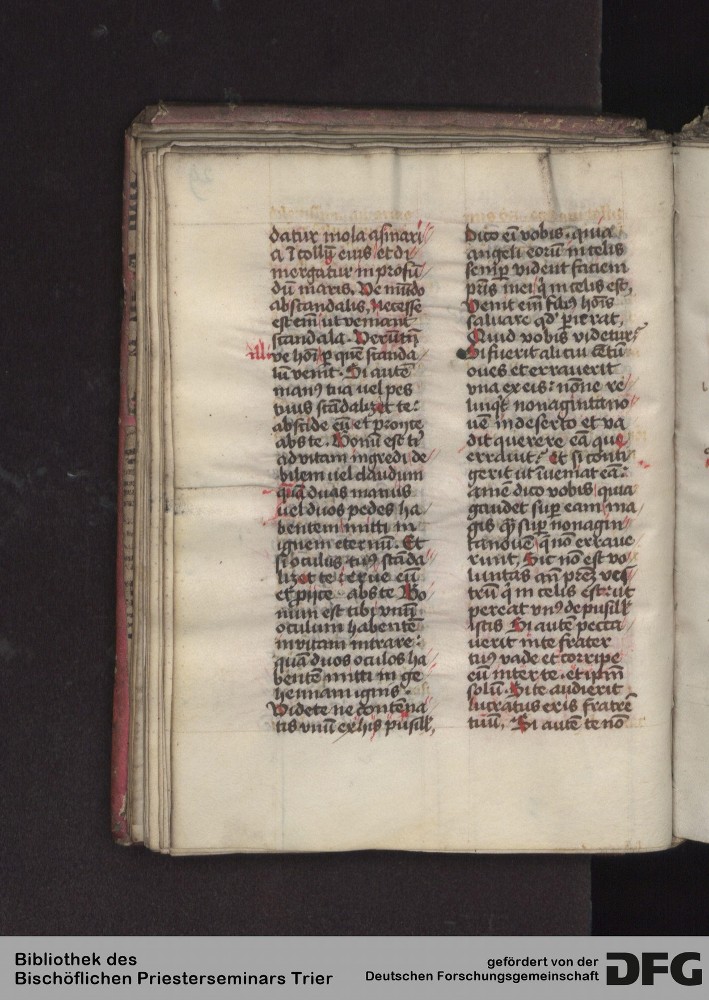 datur mola asinari
a ī collū eius et di
mergatur in profū
dū maris. Ve mūdo
ab scandalis. Necesse
est eī ut veniant
scandala. Verūtn̄
illi
ve hoī p quē scanda
lū venit. Si autē
man9 tua uel pes
tuus scādalizet te:
abscide eū et proijce
abs te. Bonū est ti
ad vitam ingredi de
bilem uel claudum
quā duas manus
uel duos pedes ha
bentem mitti in
ignem eternū. Et
si oculus tu9 scāda
lizet te: erue eū
et pijce abs te Bo
num est tibi vnū
oculum habentē
in vitam intrare:
quā duos oculos ha
bentē mitti in ge
hennam ignis.
Videte ne contēna
tis vnū ex his pusill
dico eī vobis. quia
angeli eorū in celis
semp vident faciem
pris mei q in celis est,
Venit eīm fili9 hoīs
saluare qd pierat,
Quid vobis videtur
Si fuerit alicui cētū
oues et errauerit
vna ex eis: nōne re
linqt nonagintano
uē in deserto et va
dit querere eā que
errauit. Et si conti
gerit ut īueniat eā:
amē dico vobis quia
gaudet sup eam ma
gis q̄ sup nonagin
tanouē q nō erraue
runt, Sic nō est vo
luntas an̄ prēz ves
trū q in celis est: ut
pereat vn9 de pusill
istis Si autē pecca
uerit in te frater
tu9 vade et corripe
eū inter te. et ipm̄
solū. Si te audierit
lucratus eris fratrē
tuū, Si autē te nō
Bibliothek des
Bischöflichen Priesterseminars Trier
gefördert von der
Deutschen Forschungsgemeinschaft
DFG